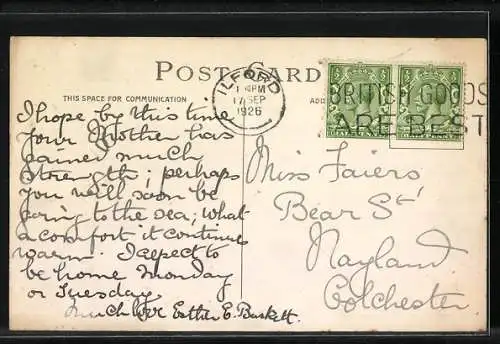 POST CARD
THIS SPACE FOR COMMUNICATION
ADD
ILFORD
1 4PM
17 SEP
1926
BRITISH GOODS
ARE BEST
I hope by this time
your Mother has
gained much
strength; perhaps
you will soon be
going to the sea; what
a comfort it continues
warm. I expect to
be home Monday
or Tuesday
Much love Esther E. Baskett.
Miss Faiers
Bear St
Nayland
Colchester